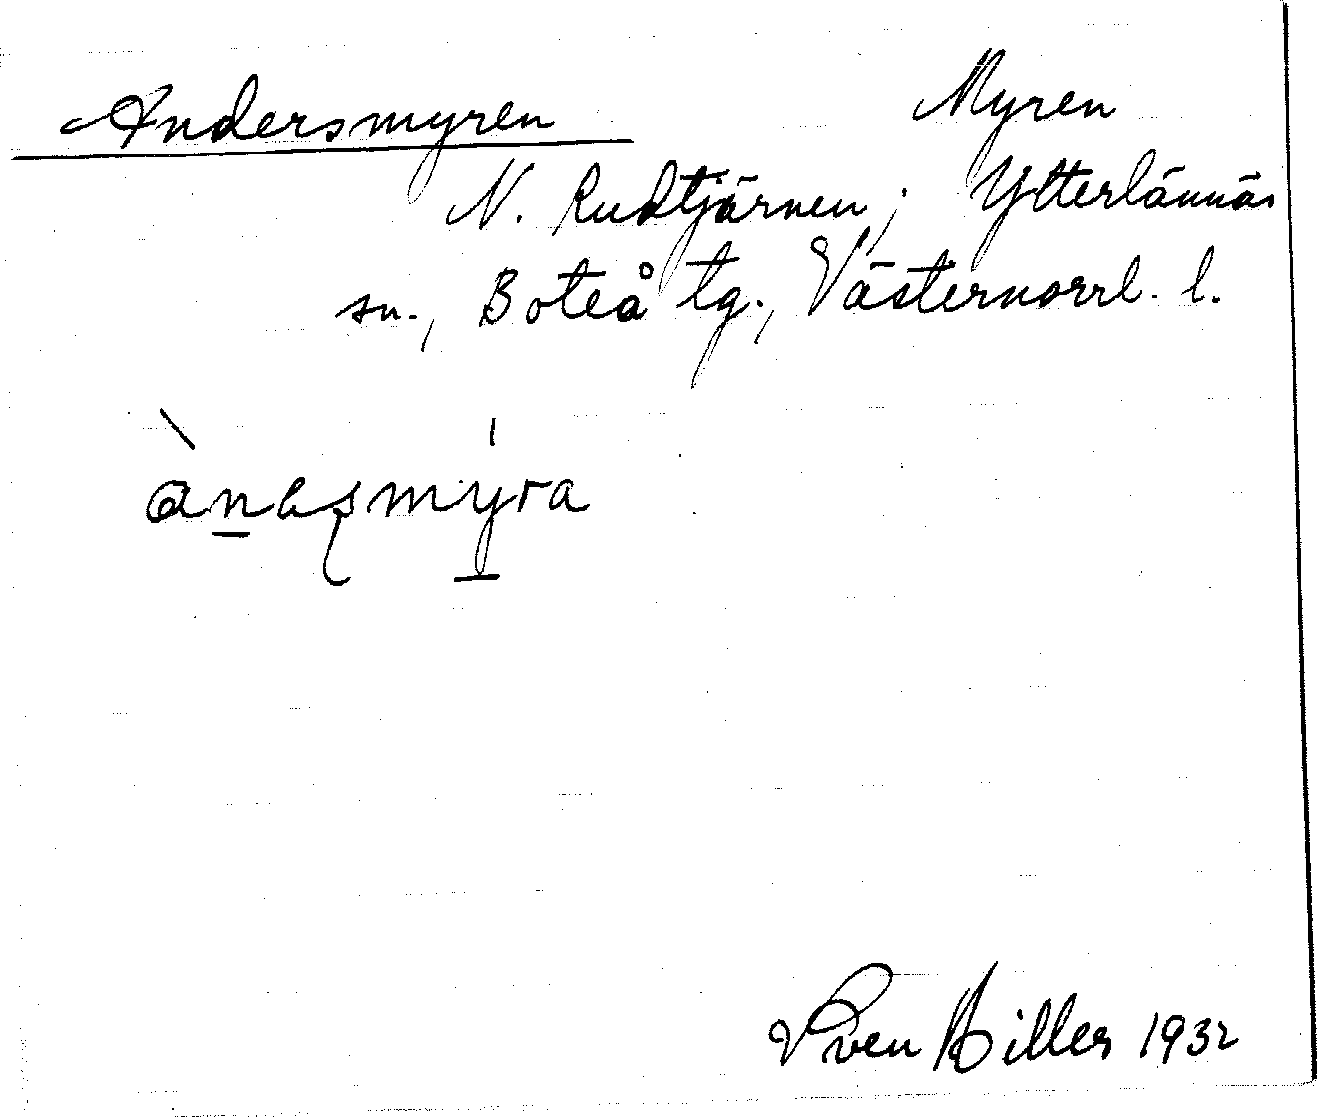 Andersmyren Myren
N. Rudtjärnen; Ytterlännäs
sn., Boteå tg., Västernorrl. l.
Sven Hiller 1932